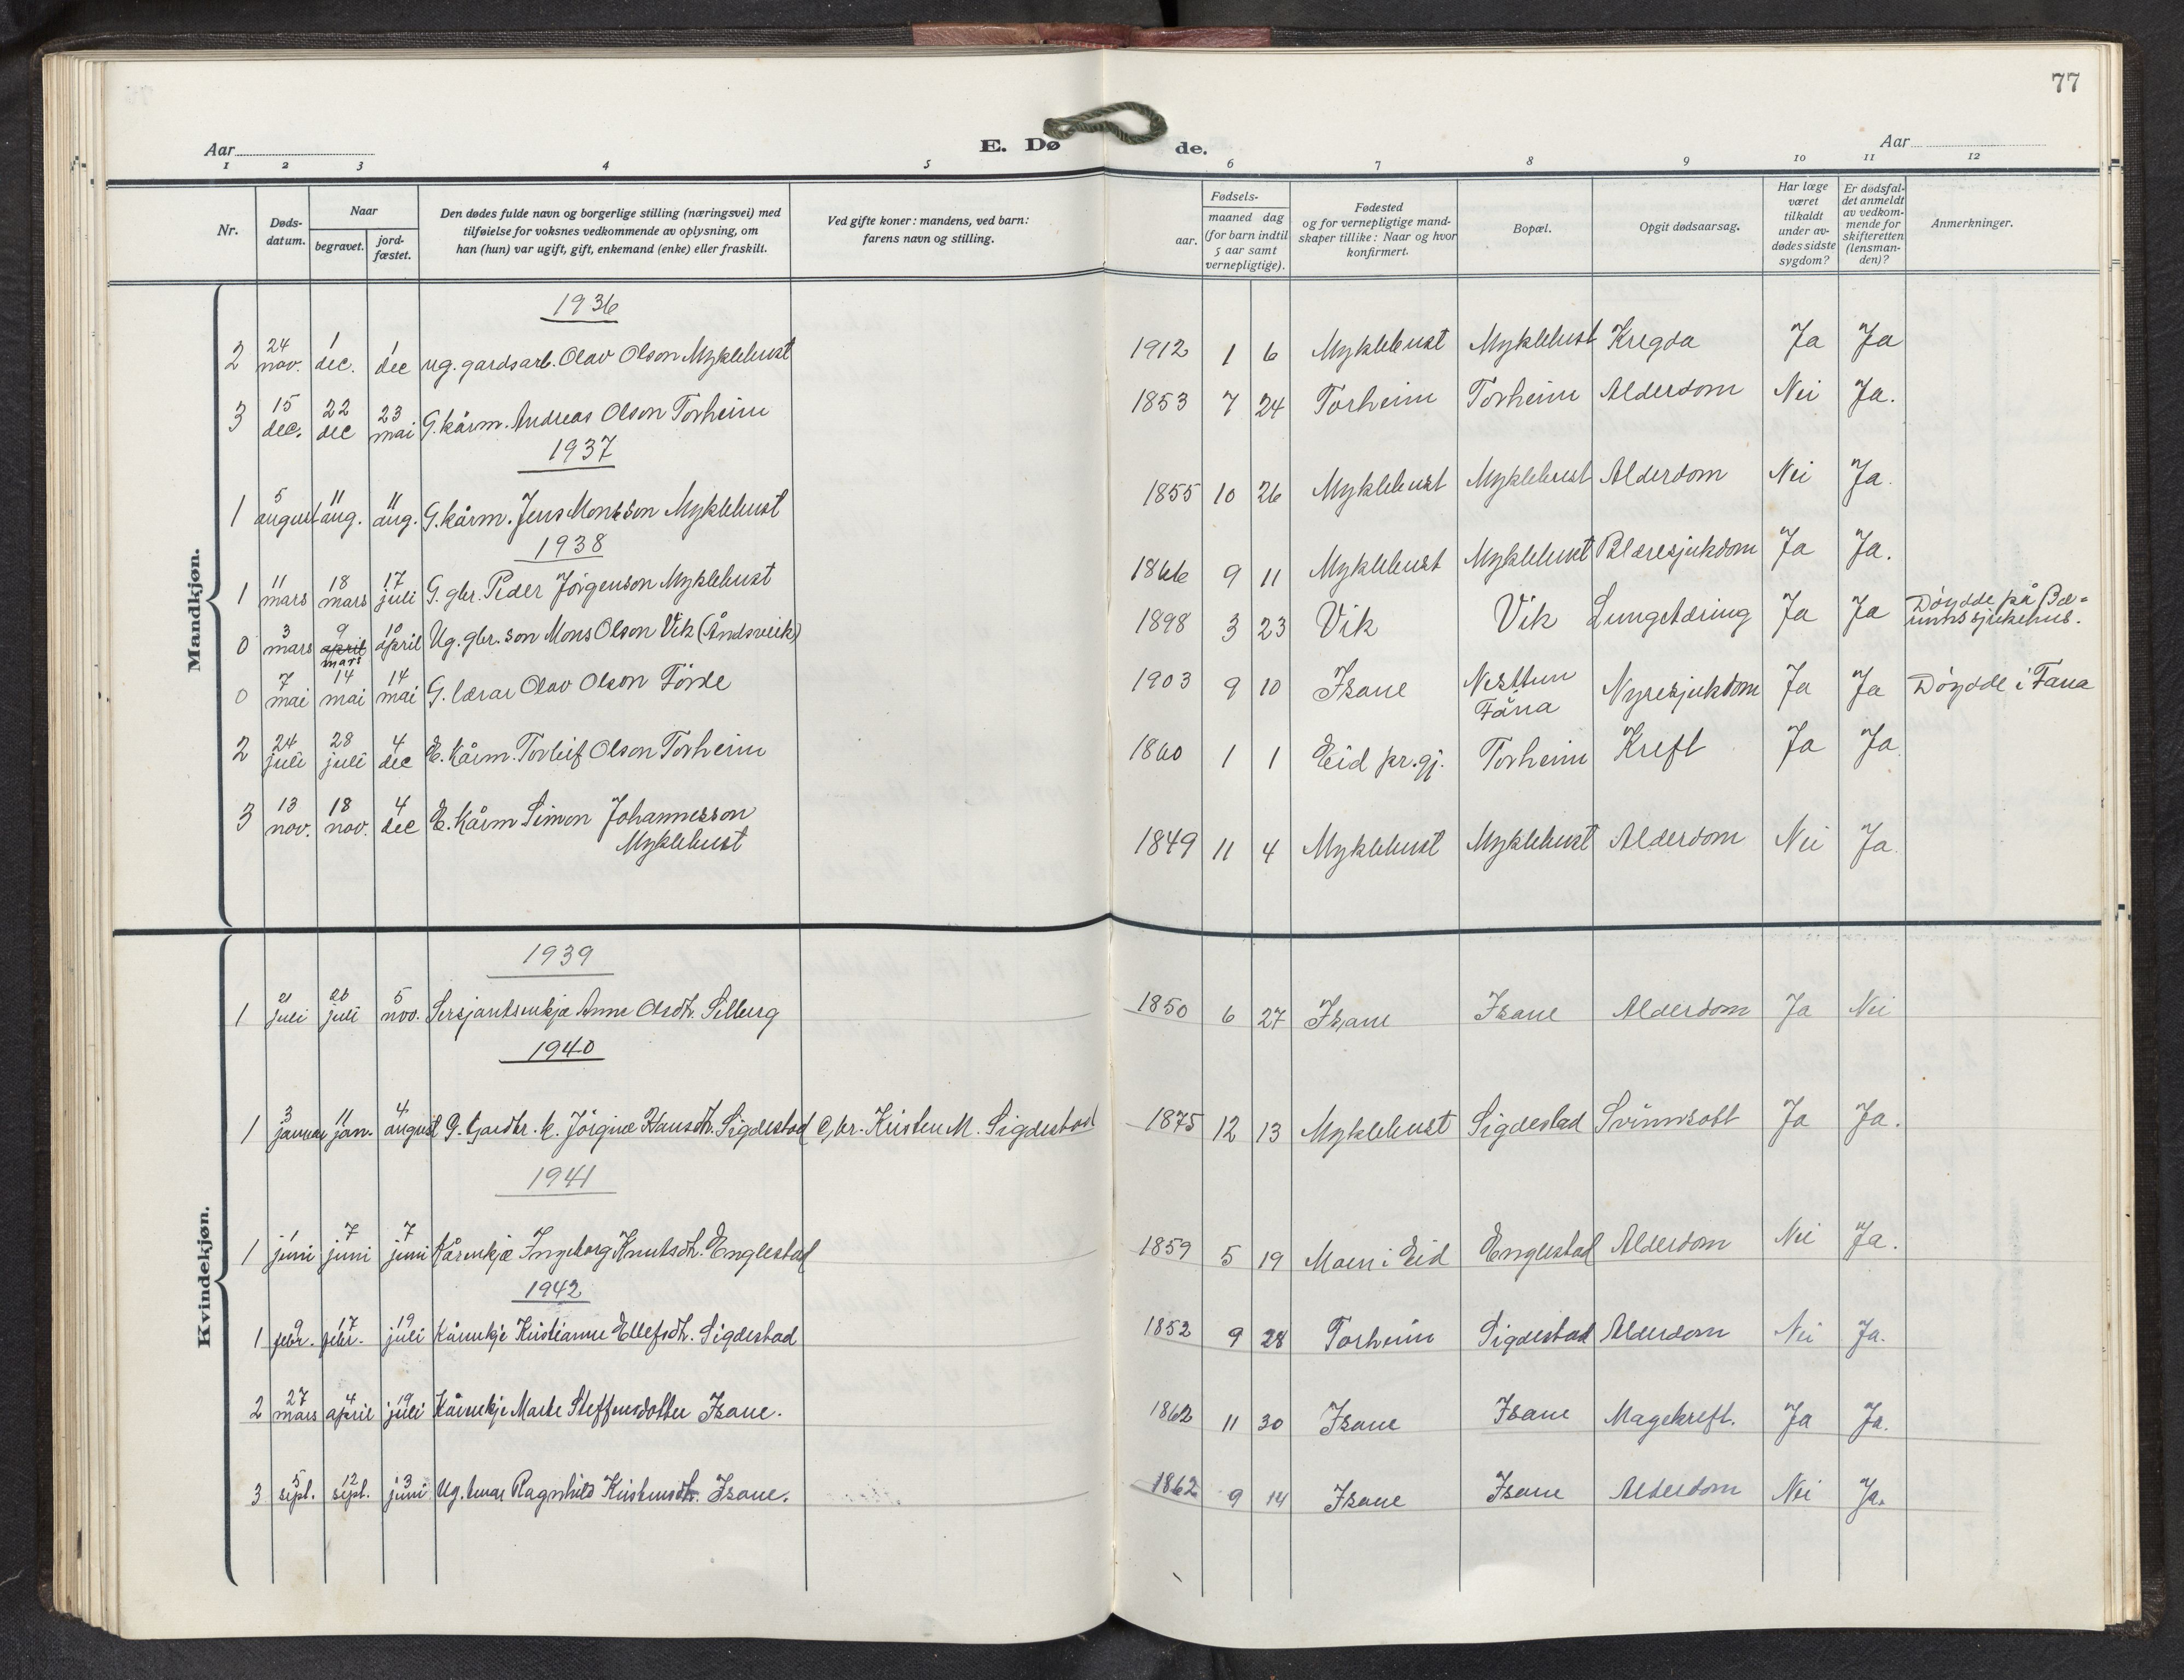 77
Aar
E. Dø de.
Aar
1 2 3 4 5 6 7 8 9 10 11 12
Nr.
Døds-
datum.
Naar
begravet.
jord-
fæstet.
Den dødes fulde navn og borgerlige stilling (næringsvei) med
tilføielse for voksnes vedkommende av oplysning, om
han (hun) var ugift, gift, enkemand (enke) eller fraskilt.
Ved gifte koner: mandens, ved barn:
farens navn og stilling.
Fødsels-
aar.
maaned dag
(for barn indtil
5 aar samt
vernepligtige).
Fødested
og for vernepligtige mand-
skaper tillike: Naar og hvor
konfirmert.
Bopæl.
Opgit dødsaarsag.
Har læge
været
tilkaldt
under av-
dødes sidste
sygdom?
Er dødsfal-
det anmeldt
av vedkom-
mende for
skifteretten
(lensman-
den)?
Anmerkninger.
Mandkjøn.
1936
2 24 nov. 1 dec. 1 dec ug. gardsarb. Olav Olson Myklebust 1912 1 6 Myklebust Myklebust Kregda Ja Ja
3 15 dec. 22 dec 23 mai G. kårm. Andreas Olson Torheim 1853 7 24 Torheim Torheim Alderdom Nei Ja.
1937
1 5 august 11 aug. 11 aug. G. kårm. Jens Monsson Myklebust 1855 10 26 Myklebust Myklebust Alderdom Nei Ja.
1938
1 11 mars 18 mars 17 juli G. gbr. Peder Jörgenson Myklebust 1866 9 11 Myklebust Myklebust Blæresjukdom Ja Ja.
0 3 mars 9 april mars 10 april Ug. gbr. son Mons Olson Vik (Åndsveik) 1898 3 23 Vik Vik Lungetæring Ja Ja Döydde på Bæ-
rums sjukehus.
0 7 mai 14 mai 14 mai G. lærar Olav Olson Förde 1903 9 10 Isane Nesttun Fana Nyresjukdom Ja Ja Döydde i Fana
2 24 juli 28 juli 4 dec E. kårm. Torleif Olson Torheim 1860 1 1 Eid pr.gj. Torheim Kreft Ja Ja.
3 13 nov. 18 nov. 4 dec E. kårm Simon Johannesson
Myklebust 1849 11 4 Myklebust Myklebust Alderdom Nei Ja.
Kvindekjøn.
1939
1 21 juli 26 juli 5 nov. Sersjantsenkje Anne Olsdtr. Silberg 1850 6 27 Isane Isane Alderdom Ja Nei
1940
1 3 januar 11 jan. 4 august G. Gardbr. k. Jörgine Hansdtr. Sigdestad Gbr. Kristen M. Sigdestad 1875 12 13 Myklebust Sigdestad Svinnsott Ja Ja.
1941
1 1 juni 7 juni 7 juni Kårenkje Ingeborg Knutsdtr. Englestad 1859 5 19 Moen i Eid Englestad Alderdom Nei Ja.
1942
1 9 febr. 17 febr. 19 juli Kårenkje Kristianne Ellefsdtr. Sigdestad 1852 9 28 Torheim Sigdestad Alderdom Nei Ja.
2 27 mars 4 april 19 juli Kårenkje Marte Steffensdotter Isane. 1862 11 30 Isane Isane Magekreft. Ja Ja.
3 5 sept. 12 sept. 13 juni Ug. Ragnhild Kristensdtr. Isane. 1862 9 14 Isane Isane Alderdom Nei Ja.